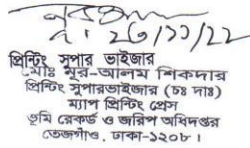 ২৩/১১/২২
প্রিন্টিং সুপার ভাইজার
মোঃ নুর-আলম শিকদার
প্রিন্টিং সুপারভাইজার (চঃ দাঃ)
ম্যাপ প্রিন্টিং প্রেস
ভূমি রেকর্ড ও জরিপ অধিদপ্তর
তেজগাঁও, ঢাকা-১২০৮।